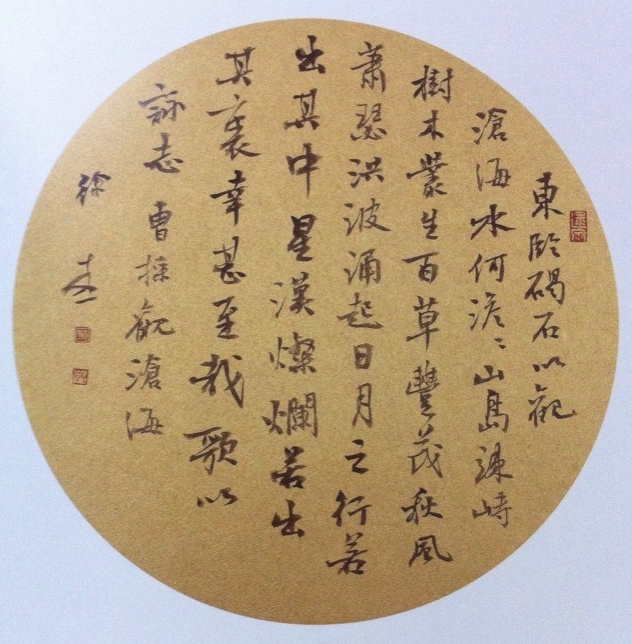 東臨碣石以觀
滄海水何澹〻山島竦峙
樹木叢生百草豐茂秋風
蕭瑟洪波涌起日月之行若
出其中星漢燦爛若出
其裏幸甚至哉歌以
詠志曹操觀滄海
徐